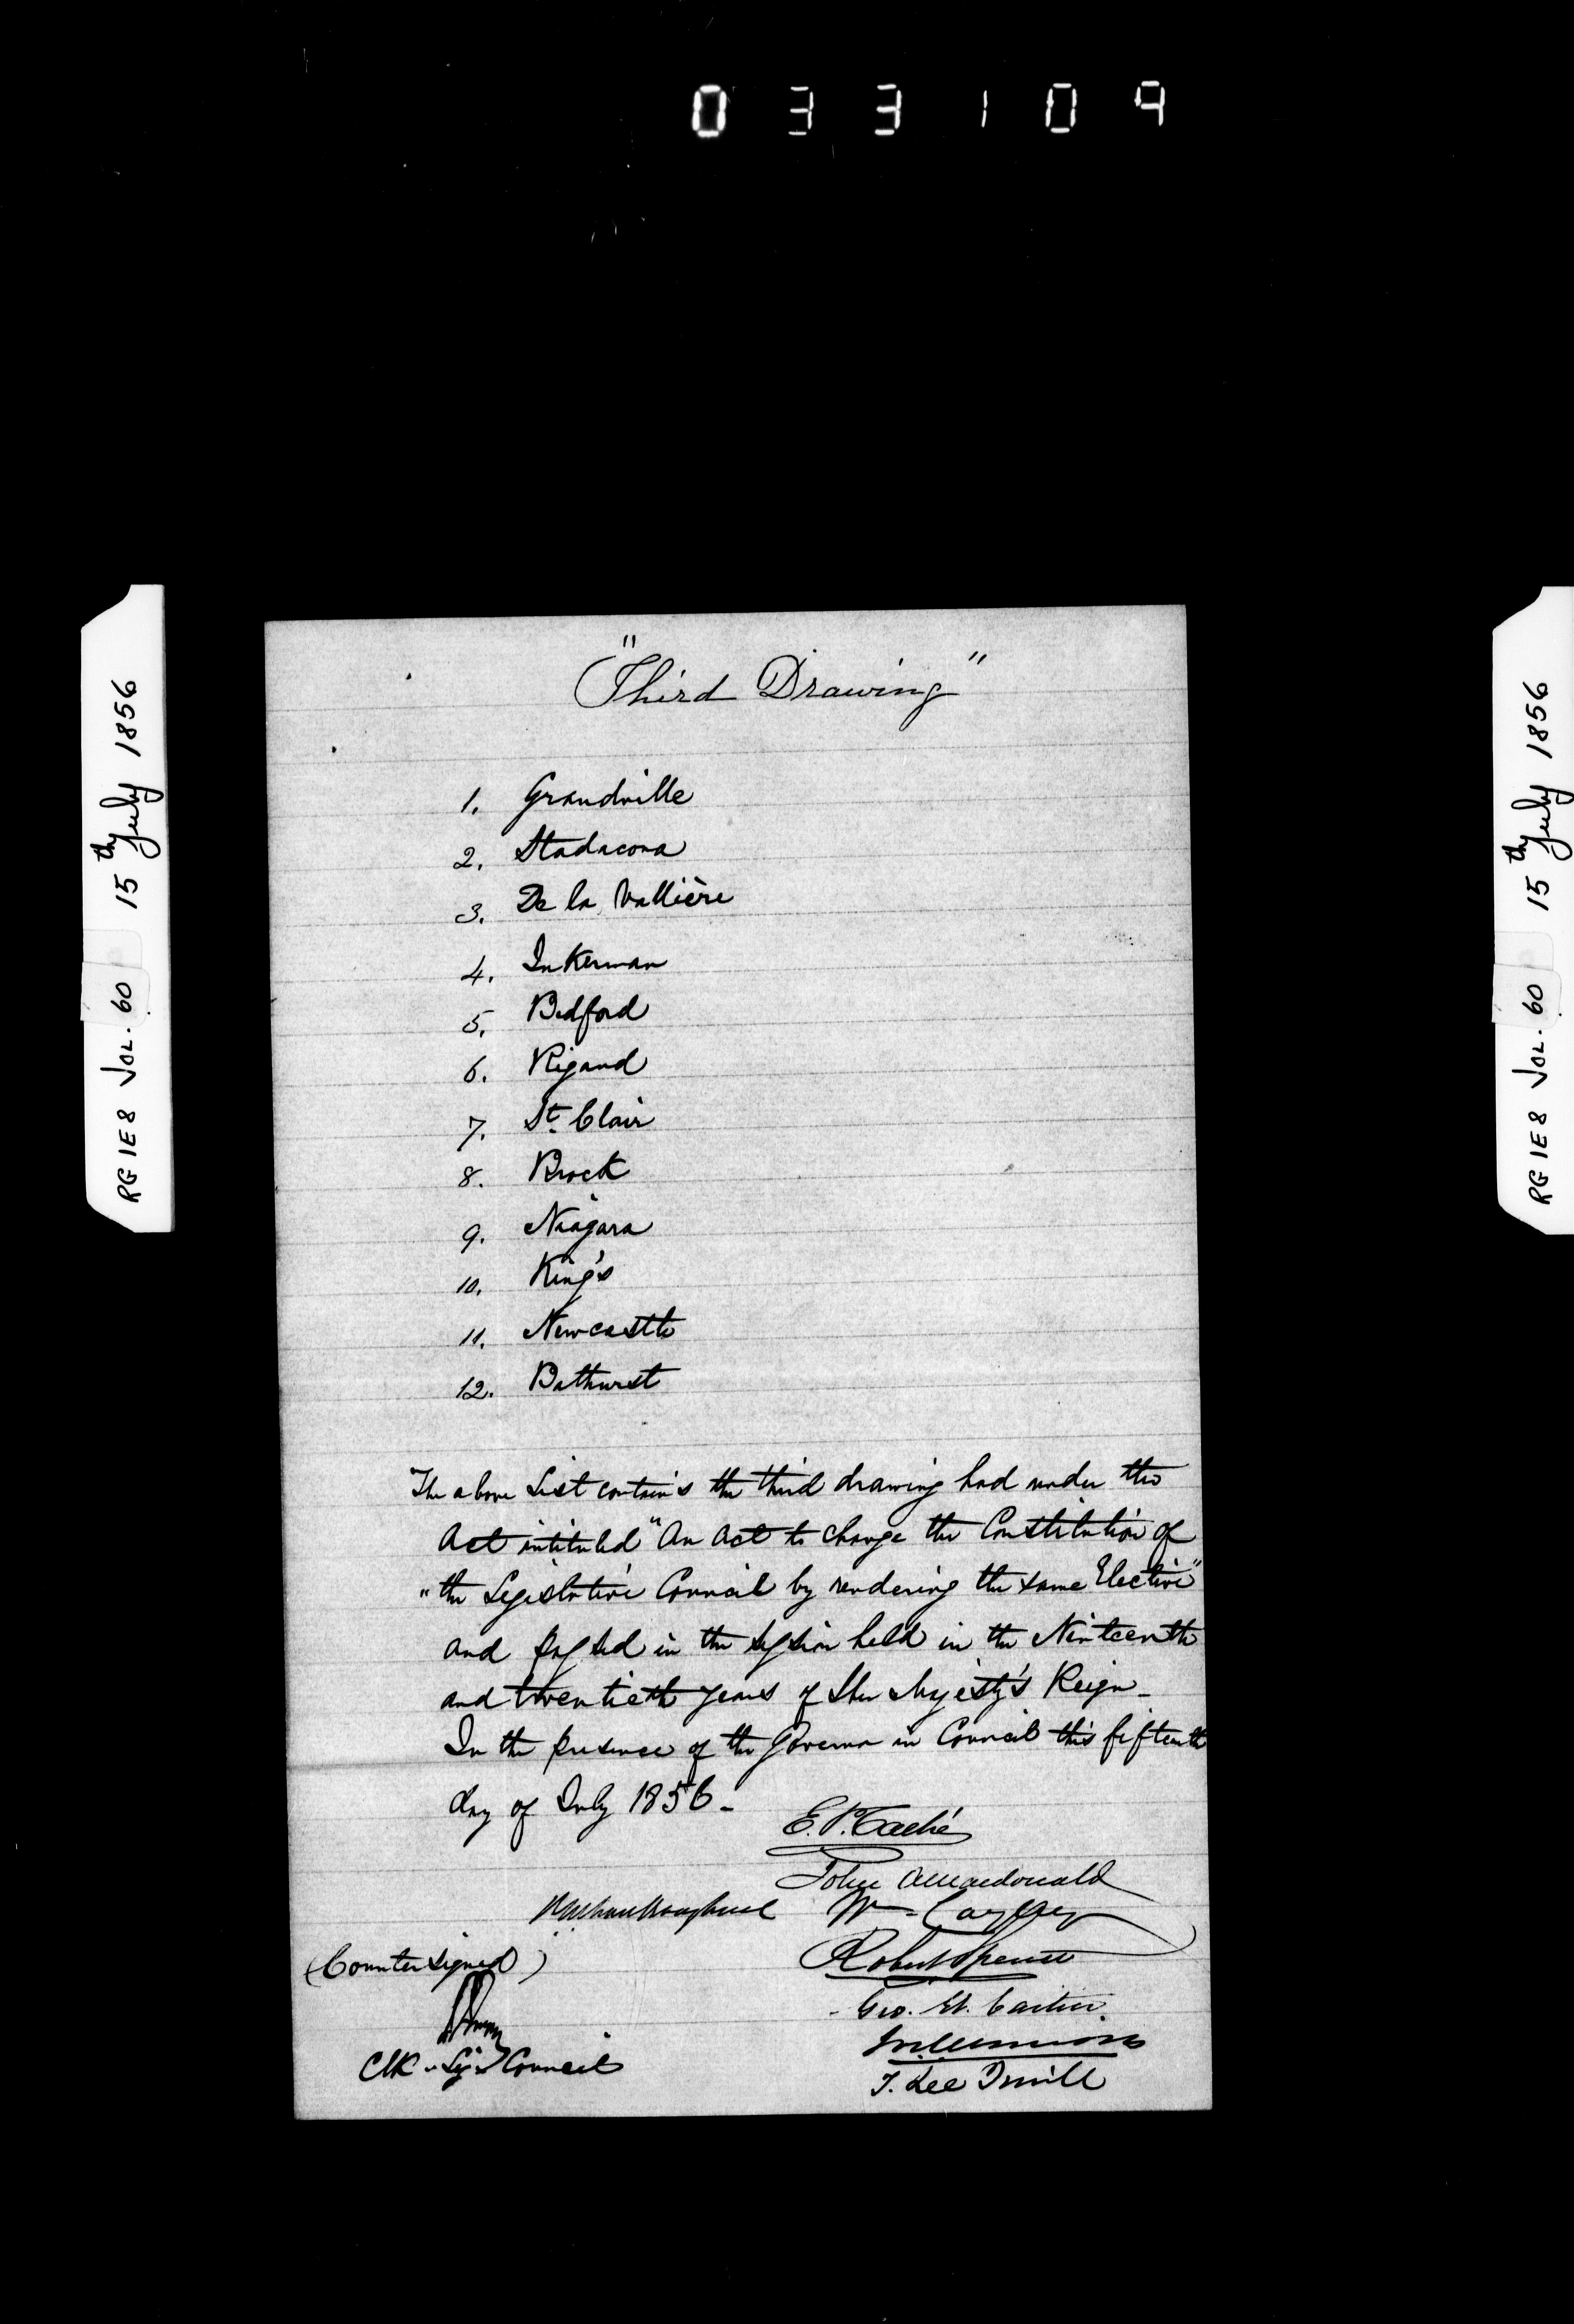 033109
RG 1E8 VOL. 60 15th July 1856
"Third Drawing"
1. Grandville
2. Stadacona
3. De la Vallière
4. Inkerman
5. Bedford
6. Rigaud
7. St. Clair
8. Brock
9. Niagara
10. King's
11. Newcastle
12. Bathurst
The above List contains the third drawing had under the
Act intituled "An Act to change the Constitution of
"the Legislative Council by rendering the same Elective"
and passed in the session held in the Ninteenth
and twentieth years of Her Majesty's Reign_
In the presence of the Governor in Council this fifteenth
day of July 1856_
E. P. Taché
John A Macdonald
Wm Cayley
Robert Spence
(Countersigned)
Geo. Et. Cartier
T. Lee Terrill
Clk Leg Council
RG 1E8 VOL. 60 15th July 1856